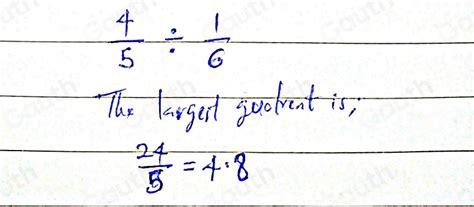 4/5 ÷ 1/6
The largest quotient is;
24/5 = 4.8